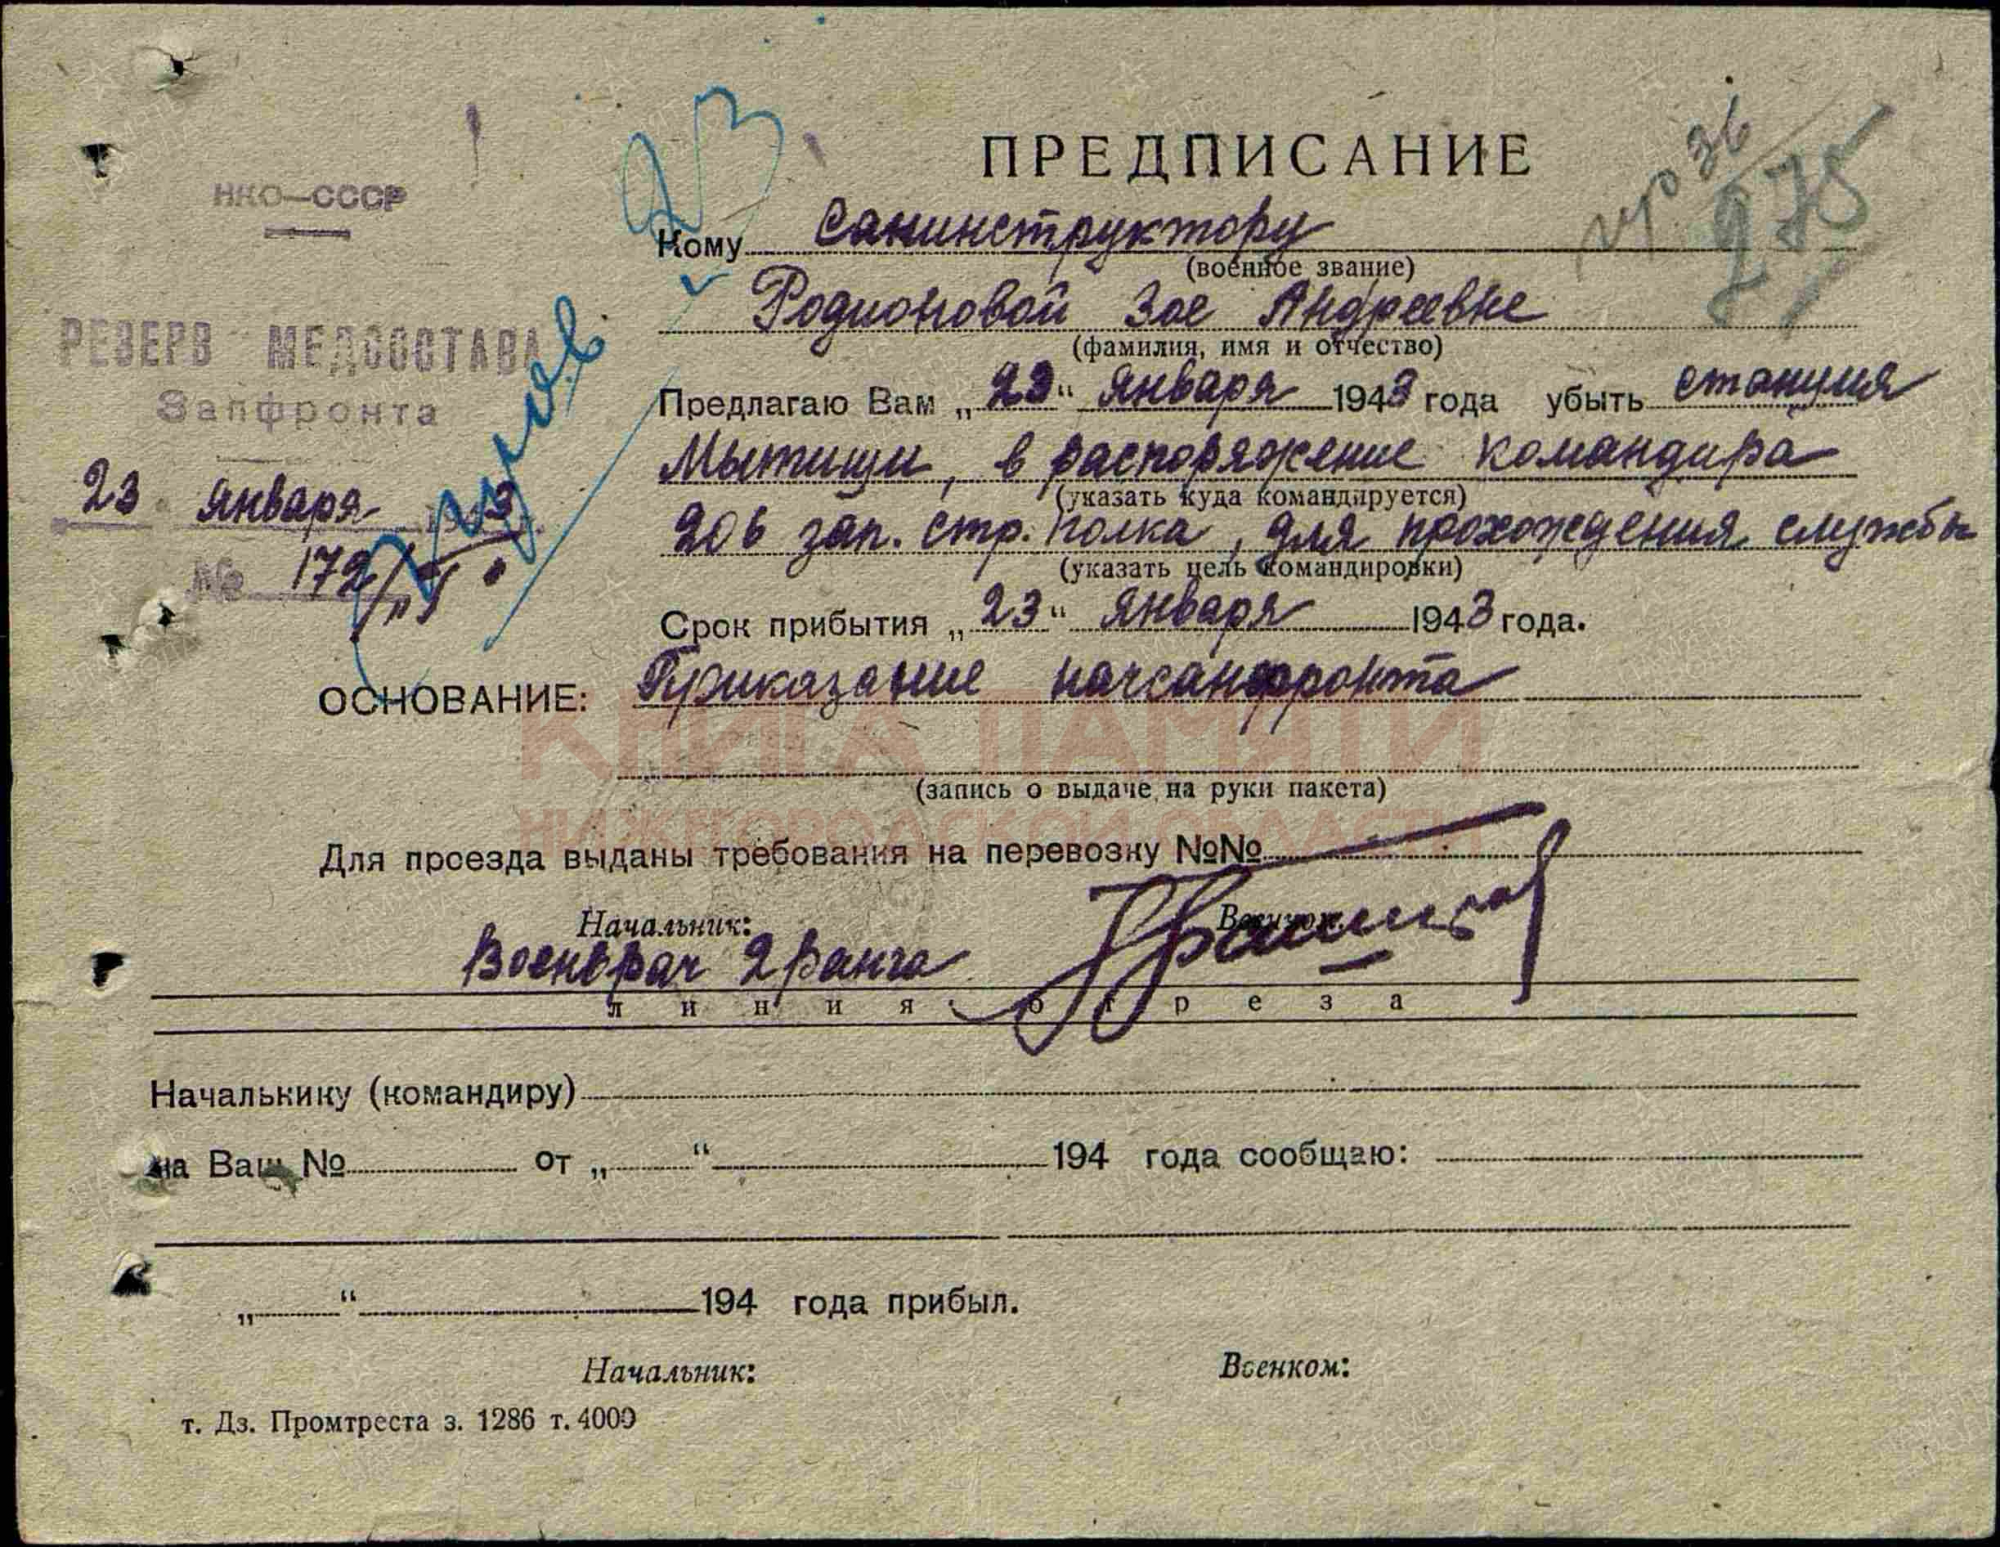 НКО—СССР
РЕЗЕРВ МЕДСОСТАВА
Запфронта
23 января 1943
№ 172/
23
пр 36
275
ПРЕДПИСАНИЕ
Кому Санинструктору
(военное звание)
Родионовой Зое Андреевне
(фамилия, имя и отчество)
Предлагаю Вам „23“ января 1943 года убыть станция
Мытищи, в распоряжение командира
(указать куда командируется)
206 зап. стр. полка, для прохождения службы
(указать цель командировки)
Срок прибытия „23“ января 1943 года.
ОСНОВАНИЕ: Приказание начсанфронта
КНИГА ПАМЯТИ
НИЖЕГОРОДСКОЙ ОБЛАСТИ
(запись о выдаче на руки пакета)
Для проезда выданы требования на перевозку №№
Начальник: Военком:
Военврач 2 ранга
линия отреза
Начальнику (командиру)
на Ваш № от „ “ 194 года сообщаю:
„ “ 194 года прибыл.
Начальник: Военком:
т. Дз. Промтреста з. 1286 т. 4000